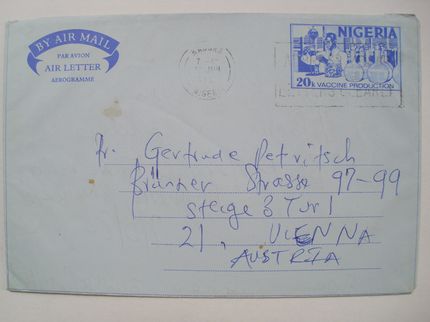 BY AIR MAIL
PAR AVION
AIR LETTER
AEROGRAMME
NIGERIA
20k VACCINE PRODUCTION
Fr. Gertrude Petritsch
Brünner Strasse 97-99
stiege 3 Tür 1
21, VIENNA
AUSTRIA